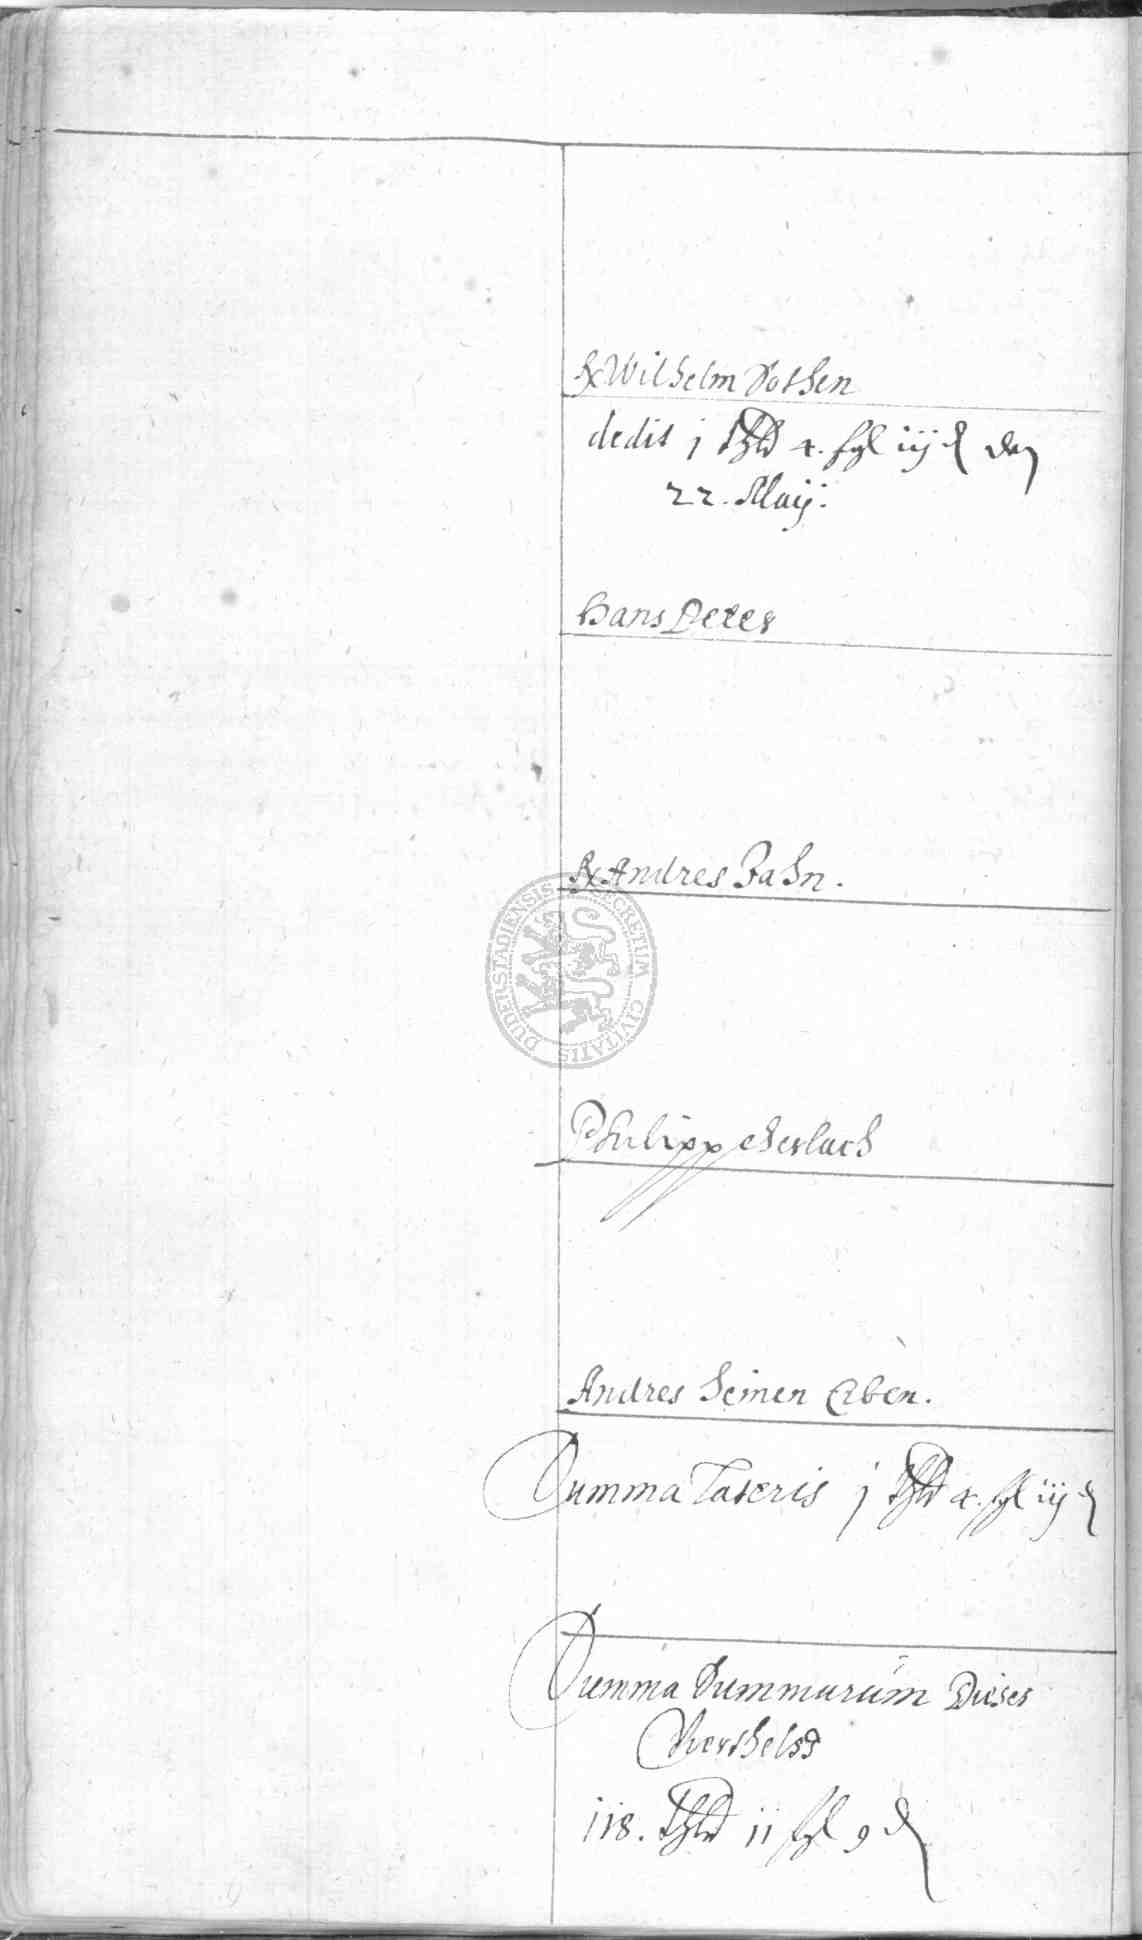 Wilhelm Dothen
dedit j thlr 4. sgl iij d den
22. Maij.
Hans Peter
Andres Zahn.
DUDERSTADIENSIS SECRETUM CIVITATIS
Philipp Gerlach
Andres heinen Erben.
Summa Lateris j thlr 4. sgl iij d
Summa Summarum Dieses
Vierthels
118. thlr 11 sgl 9 d